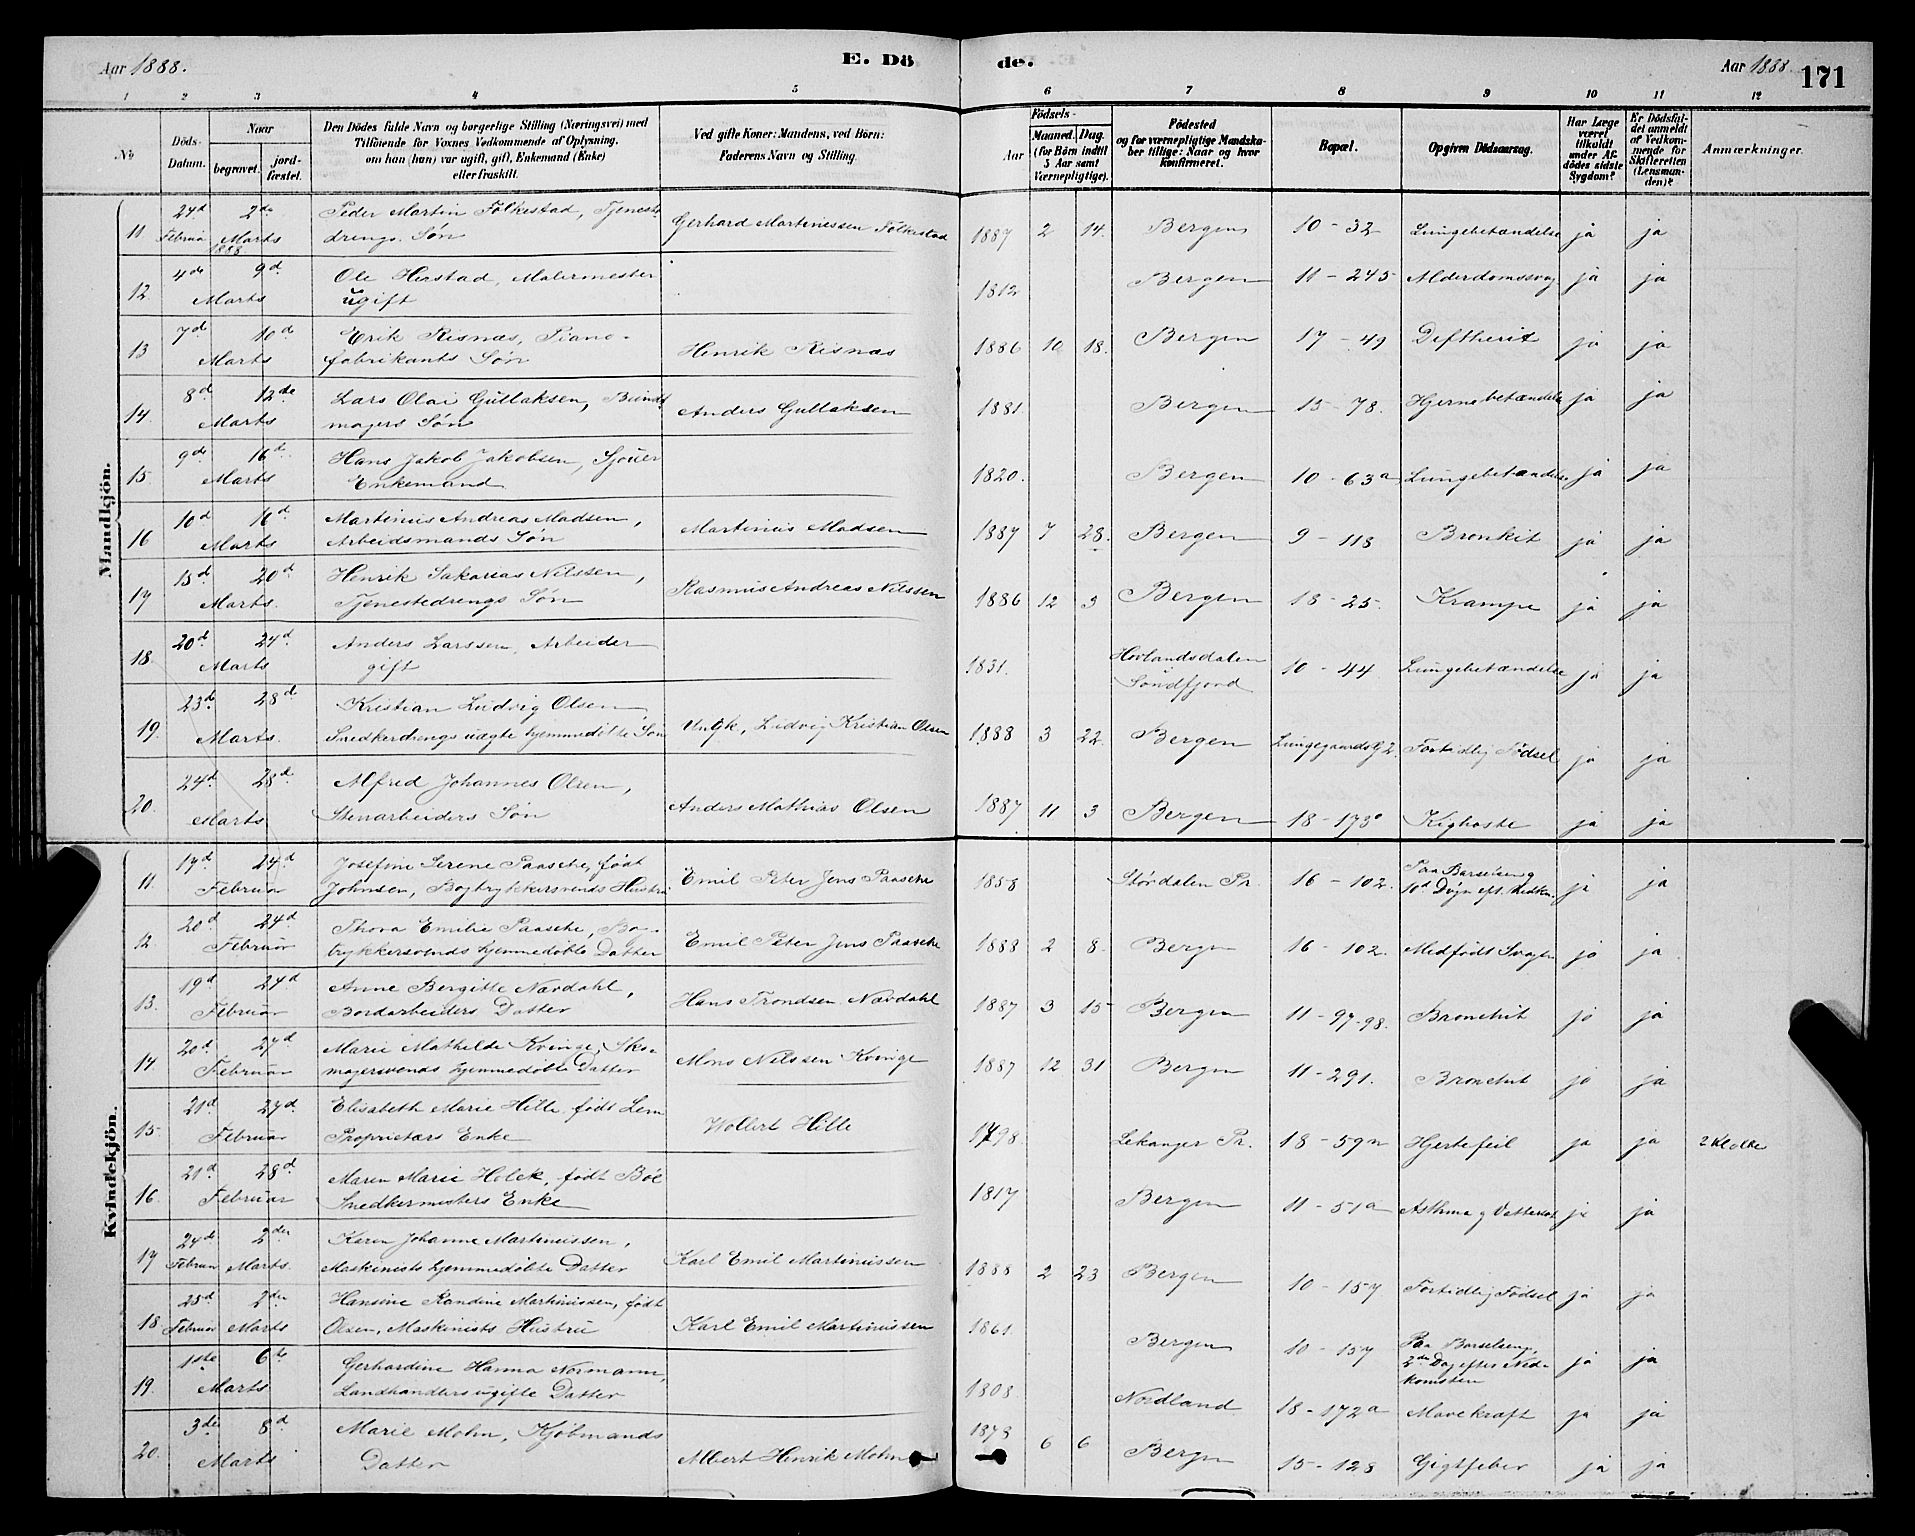 Aar 1888. E. Dö de. Aar 1888. 171
1 2 3 4 5 6 7 8 9 10 11 12
No Döds-Datum. Naar begravet. jord-fæstet. Den Dödes fulde Navn og borgerlige Stilling (Næringsvei) med Tilföiende for Voxnes Vedkommende af Oplysning, om han (hun) var ugift, gift, Enkemand (Enke) eller fraskilt. Ved gifte Koner: Mandens, ved Börn: Faderens Navn og Stilling. Födsels- Aar Maaned. Dag. (for Börn indtil 5 Aar samt Værnepligtige). Födested og for værnepligtige Mandskaber tillige: Naar og hvor konfirmeret. Bopæl. Opgiven Dödsaarsag. Har Læge været tilkaldt under Afdödes sidste Sygdom? Er Dödsfaldet anmeldt af Vedkommende for Skifteretten (Lensmanden)? Anmærkninger.
Mandkjön.
11 24d Februar 2de Marts 1888 Peder Martin Folkestad, Tjeneste
drengs Søn Gerhard Martinessen Folkestad 1887 2 14. Bergen 10-32 Lungebetændelse ja ja
12 4de 9d Marts Ole Herstad, Malermester
ugift 1812 Bergen 11-245 Alderdomssvag ja ja
13 7de 10de Marts Erik Risnæs, Piano-
fabrikants Søn Henrik Risnæs 1886 10 18. Bergen 17-49 Deftherit ja ja
14 8d 12de Marts Lars Olai Gullaksen, Bundt
magers Søn Anders Gullaksen 1881. Bergen 15-78. Hjernebetændelse ja ja
15 9de 16de Marts Hans Jakob Jakobsen, Sjouer
Enkemand 1820. Bergen 10-63a Lungebetændelse ja ja
16 10d 16d Marts Martinus Andreas Madsen,
Arbeidsmands Søn Martinus Madsen 1887 7 28. Bergen 9-118 Bronkit ja ja
17 15d 20d Marts. Henrik Sakarias Nilssen,
Tjenestedrengs Søn Rasmus Andreas Nilssen 1886 12 3 Bergen 18-25. Krampe ja ja
18. 20d 24d Marts Anders Larssen, Arbeider
gift 1831. Hovlandsdalen
i Søndfjord 10-44 Lungebetændelse ja ja
19. 23d. 28d Marts. Kristian Ludvig Olsen
Snedkerdrengs uægte hjemmedøbte Søn Ungk. Ludvig Kristian Olsen 1888 3 22. Bergen Lungegaardsg 2. Fortidlig Fødsel ja ja
20. 24d 28d Marts Alfred Johannes Olsen,
Stenarbeiders Søn Anders Mathias Olsen 1887 11 3 Bergen 18-173a Kighoste ja ja
Kvindekjön.
11. 17d 24d Februar Josefine Serene Paasche, født
Johnsen, Bogtrykkersvends Hustru Emil Peter Jens Paasche 1858 Størdalen Pr. 16-102. Paa Barselseng
10d Døgn eft. Nedkn. ja ja
12. 20d 24d Februar Thora Emilie Paasche, Bog-
trykkersvends hjemmedøbte Datter Emil Peter Jens Paasche 1888 2 8. Bergen 16-102. Medfødt Svaghed ja ja
13. 19d 24d Februar Anne Bergitte Nævdahl,
Bordarbeiders Datter Hans Trondsen Nævdahl 1887 3 15 Bergen 11-97-98. Bronchit ja ja
14. 20d 27d Februar Marie Mathilde Kvinge, Sko-
magersvends hjemmedøbte Datter Mons Nilssen Kvinge 1887 12 31 Bergen 11-291. Bronchit ja ja
15. 21d 27d. Februar Elisabeth Marie Hille, født Lem
Proprietærs Enke Wollert Hille 1798. Lekanger Pr. 18-59a Hjertefeil ja ja 2 Klokke
16. 21d 28d. Februar Maren Marie Holck, født Böe
Snedkermesters Enke 1817 Bergen 11-51a Asthma og Vattersot ja ja
17 24d Februar 2den Marts. Karen Johanne Martinussen,
Maskinists hjemmedøbte Datter Karl Emil Martinussen 1888 2 23 Bergen 10-157 Fortidlig Fødsel ja ja
18. 25d Februar 2den Marts Hansine Randine Martinussen, født
Olsen, Maskinists Hustru Karl Emil Martinussen 1861. Bergen 10-157 Paa Barselseng,
2den Dag efter Ned-
komsten ja ja
19. 1ste 6te Marts Gerhardine Hanna Normann,
Landhandlers ugifte Datter 1808. Nordland 18-172a Mavekræft ja ja
20. 3die 8d. Marts Marie Mohn, Kjøbmands
Datter Albert Henrik Mohn 1873 6 6 Bergen 15-128 Gigtfeber ja ja